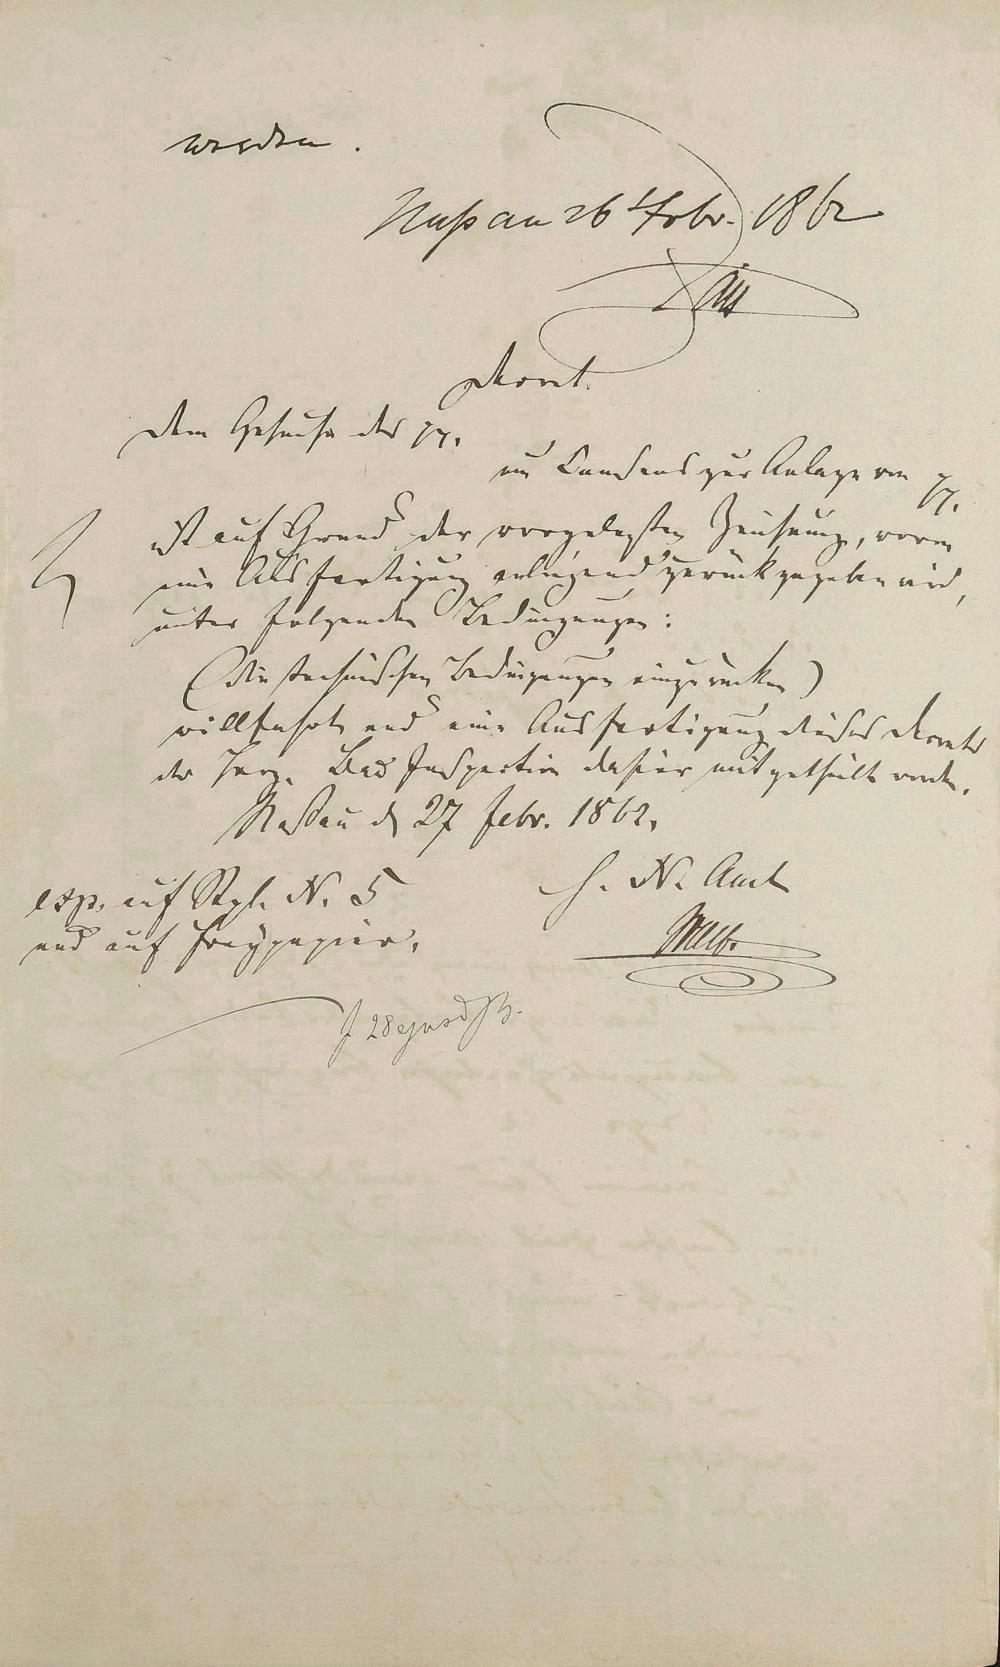 werden.
Nassau 26t Febr. 1862
Decret.
Dem Gesuche des pp.
um Consens zur Anlage von pp.
ist auf Grund der vorgelegten Zeichnung, wovon
eine Ausfertigung anliegend zurückgegeben wird,
unter folgenden Bedingungen:
(die technischen Bedingungen einzurücken)
willfahrt und eine Ausfertigung dieses Decrets
der Herz. Bad Inspection dahier mitgetheilt worden.
Nassau d 27 Febr. 1862.
exp. auf Stpl. N. 5
H. N. Amt
und auf Freypapier.
28 ejusd